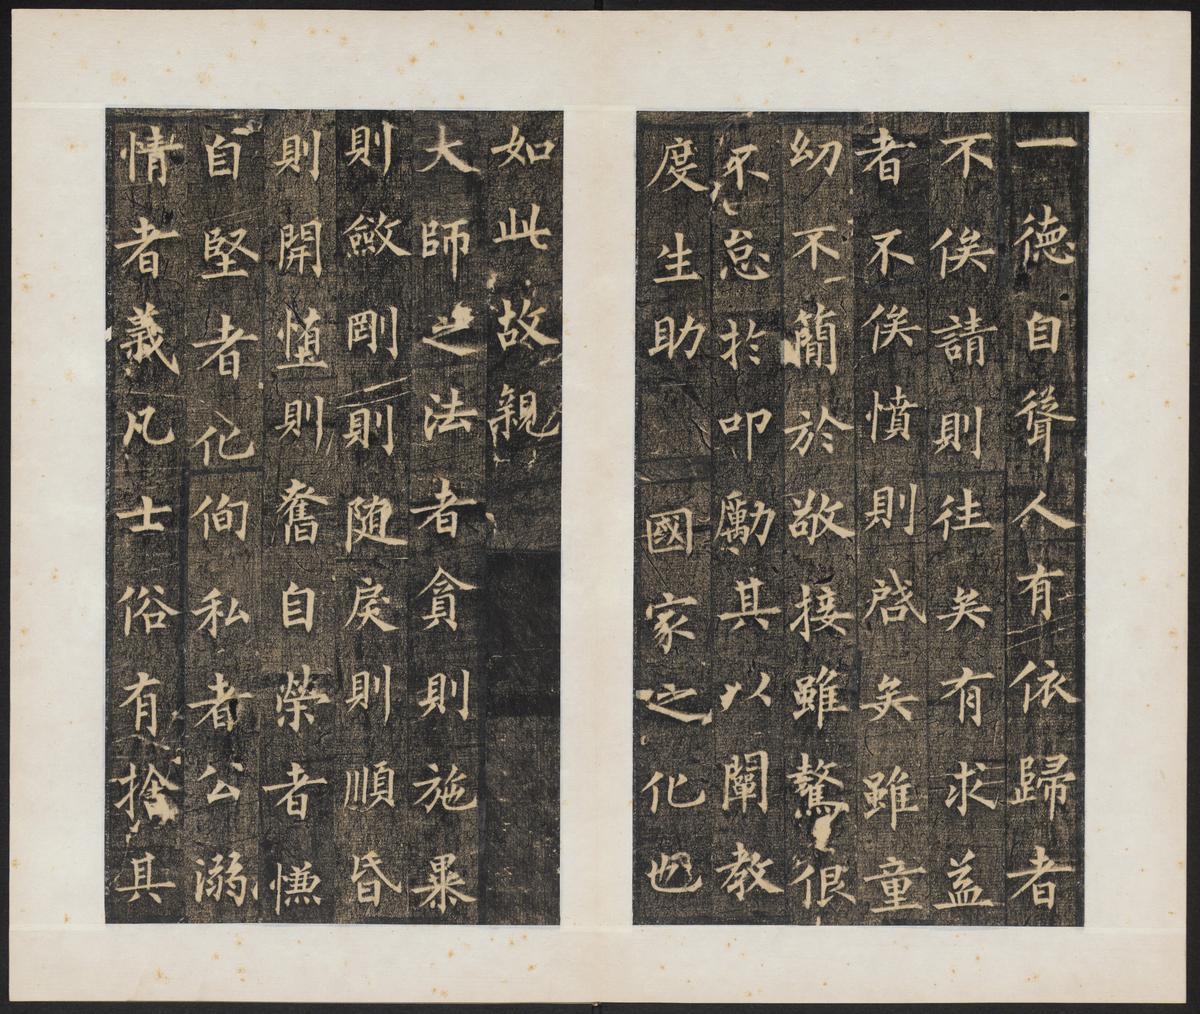 一德自聳人有依歸者
不俟請則往矣有求益
者不俟憤則啓矣雖童
幼不簡於敬接雖驁很
不怠於叩勵其以闡教
度生助 國家之化也
如此故親
大師之法者貪則施暴
則斂剛則随戾則順昏
則開墮則奮自榮者慊
自堅者化侚私者公溺
情者義凡士俗有捨其